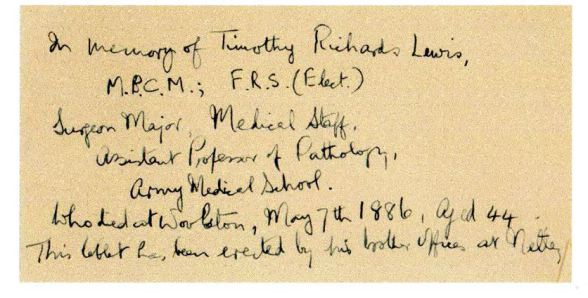 In memory of Timothy Richards Lewis,
M.B.C.M.; F.R.S. (Elect.)
Surgeon Major, Medical Staff,
Assistant Professor of Pathology,
Army Medical School.
Who died at Woolston, May 7th 1886, Aged 44.
This tablet has been erected by his brother Officers at Netley